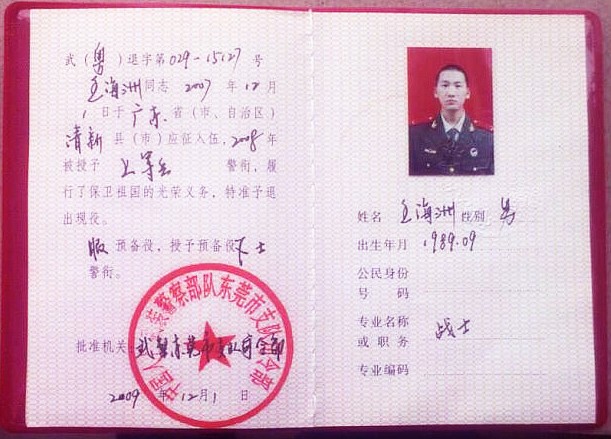 武（粤）退字第029-15127号
王海洲同志 2007 年 12 月
1 日于 广东 省（市、自治区）
清新 县（市）应征入伍，2008 年
被授予 上等兵 警衔，履
行了保卫祖国的光荣义务，特准予退
出现役。
服 预备役，授予预备役 下士
警衔。
批准机关：武警东莞市支队司令部
2009 年 12 月 1 日
中国人民武装警察部队东莞市支队司令部
姓名 王海洲 性别 男
出生年月 1989.09
公民身份
号 码
专业名称
或 职务 战士
专业编码